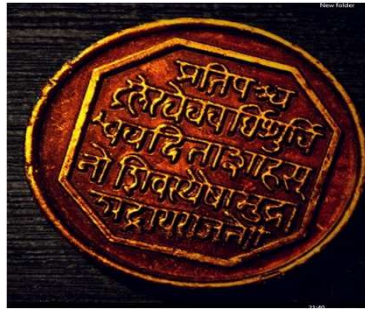 New folder
प्रतिपच्च
द्रलेखेव वर्धिष्णुर्वि
श्ववंदिता शाहसू
नो शिवस्यैषा मुद्रा
भद्राय राजते॥